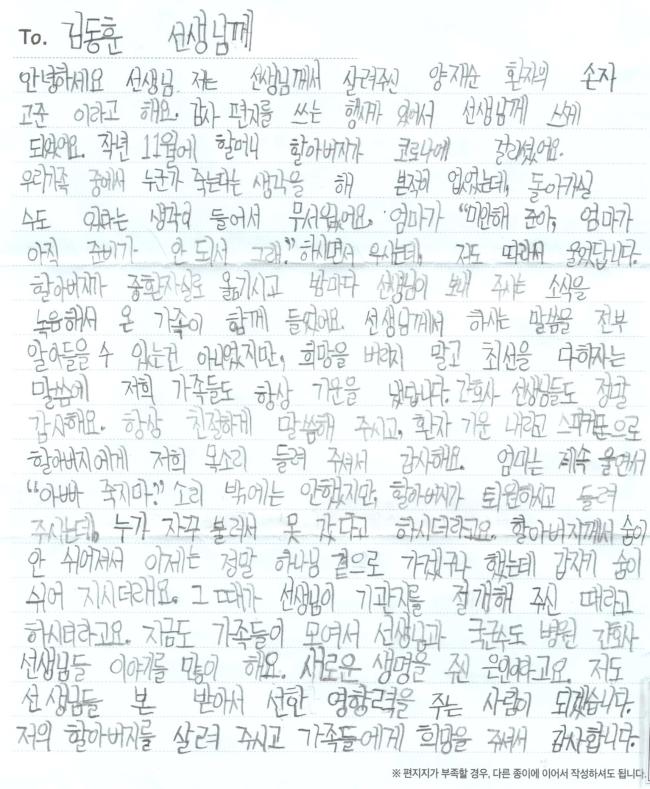 To. 김동훈 선생님께
안녕하세요 선생님. 저는 선생님께서 살려주신 양재순 환자의 손자
고준 이라고 해요. 감사 편지를 쓰는 행사가 있어서 선생님께 쓰게
되었어요. 작년 11월에 할머니 할아버지가 코로나에 걸리셨어요.
우리가족 중에서 누군가 죽는다는 생각을 해 본적이 없었는데, 돌아가실
수도 있다는 생각이 들어서 무서웠어요. 엄마가 "미안해 준아, 엄마가
아직 준비가 안 되서 그래." 하시면서 우시는데, 저도 따라서 울었답니다.
할아버지가 중환자실로 옮기시고 밤마다 선생님이 보내 주시는 소식을
녹음해서 온 가족이 함께 들었어요. 선생님께서 하시는 말씀을 전부
알아들을 수 있는건 아니었지만, 희망을 버리지 말고 최선을 다하자는
말씀에 저희 가족들도 항상 기운을 냈답니다. 간호사 선생님들도 정말
감사해요. 항상 친절하게 말씀해 주시고, 환자 기운 내라고 스피커폰으로
할아버지에게 저희 목소리 들려 주셔서 감사해요. 엄마는 계속 울면서
"아빠 죽지마." 소리 밖에는 안했지만, 할아버지가 퇴원하시고 들려
주시는데, 누가 자꾸 불러서 못 갔다고 하시더라고요. 할아버지께서 숨이
안 쉬어져서 이제는 정말 하나님 곁으로 가겠구나 했는데 갑자기 숨이
쉬어 지시더래요. 그 때가 선생님이 기관지를 절개해 주신 때라고
하시더라고요. 지금도 가족들이 모여서 선생님과 국군수도 병원 간호사
선생님들 이야기를 많이 해요. 새로운 생명을 주신 은인이라고요. 저도
선생님들 본 받아서 선한 영향력을 주는 사람이 되겠습니다.
저의 할아버지를 살려 주시고 가족들에게 희망을 주셔서 감사합니다.
※ 편지지가 부족할 경우, 다른 종이에 이어서 작성하셔도 됩니다.